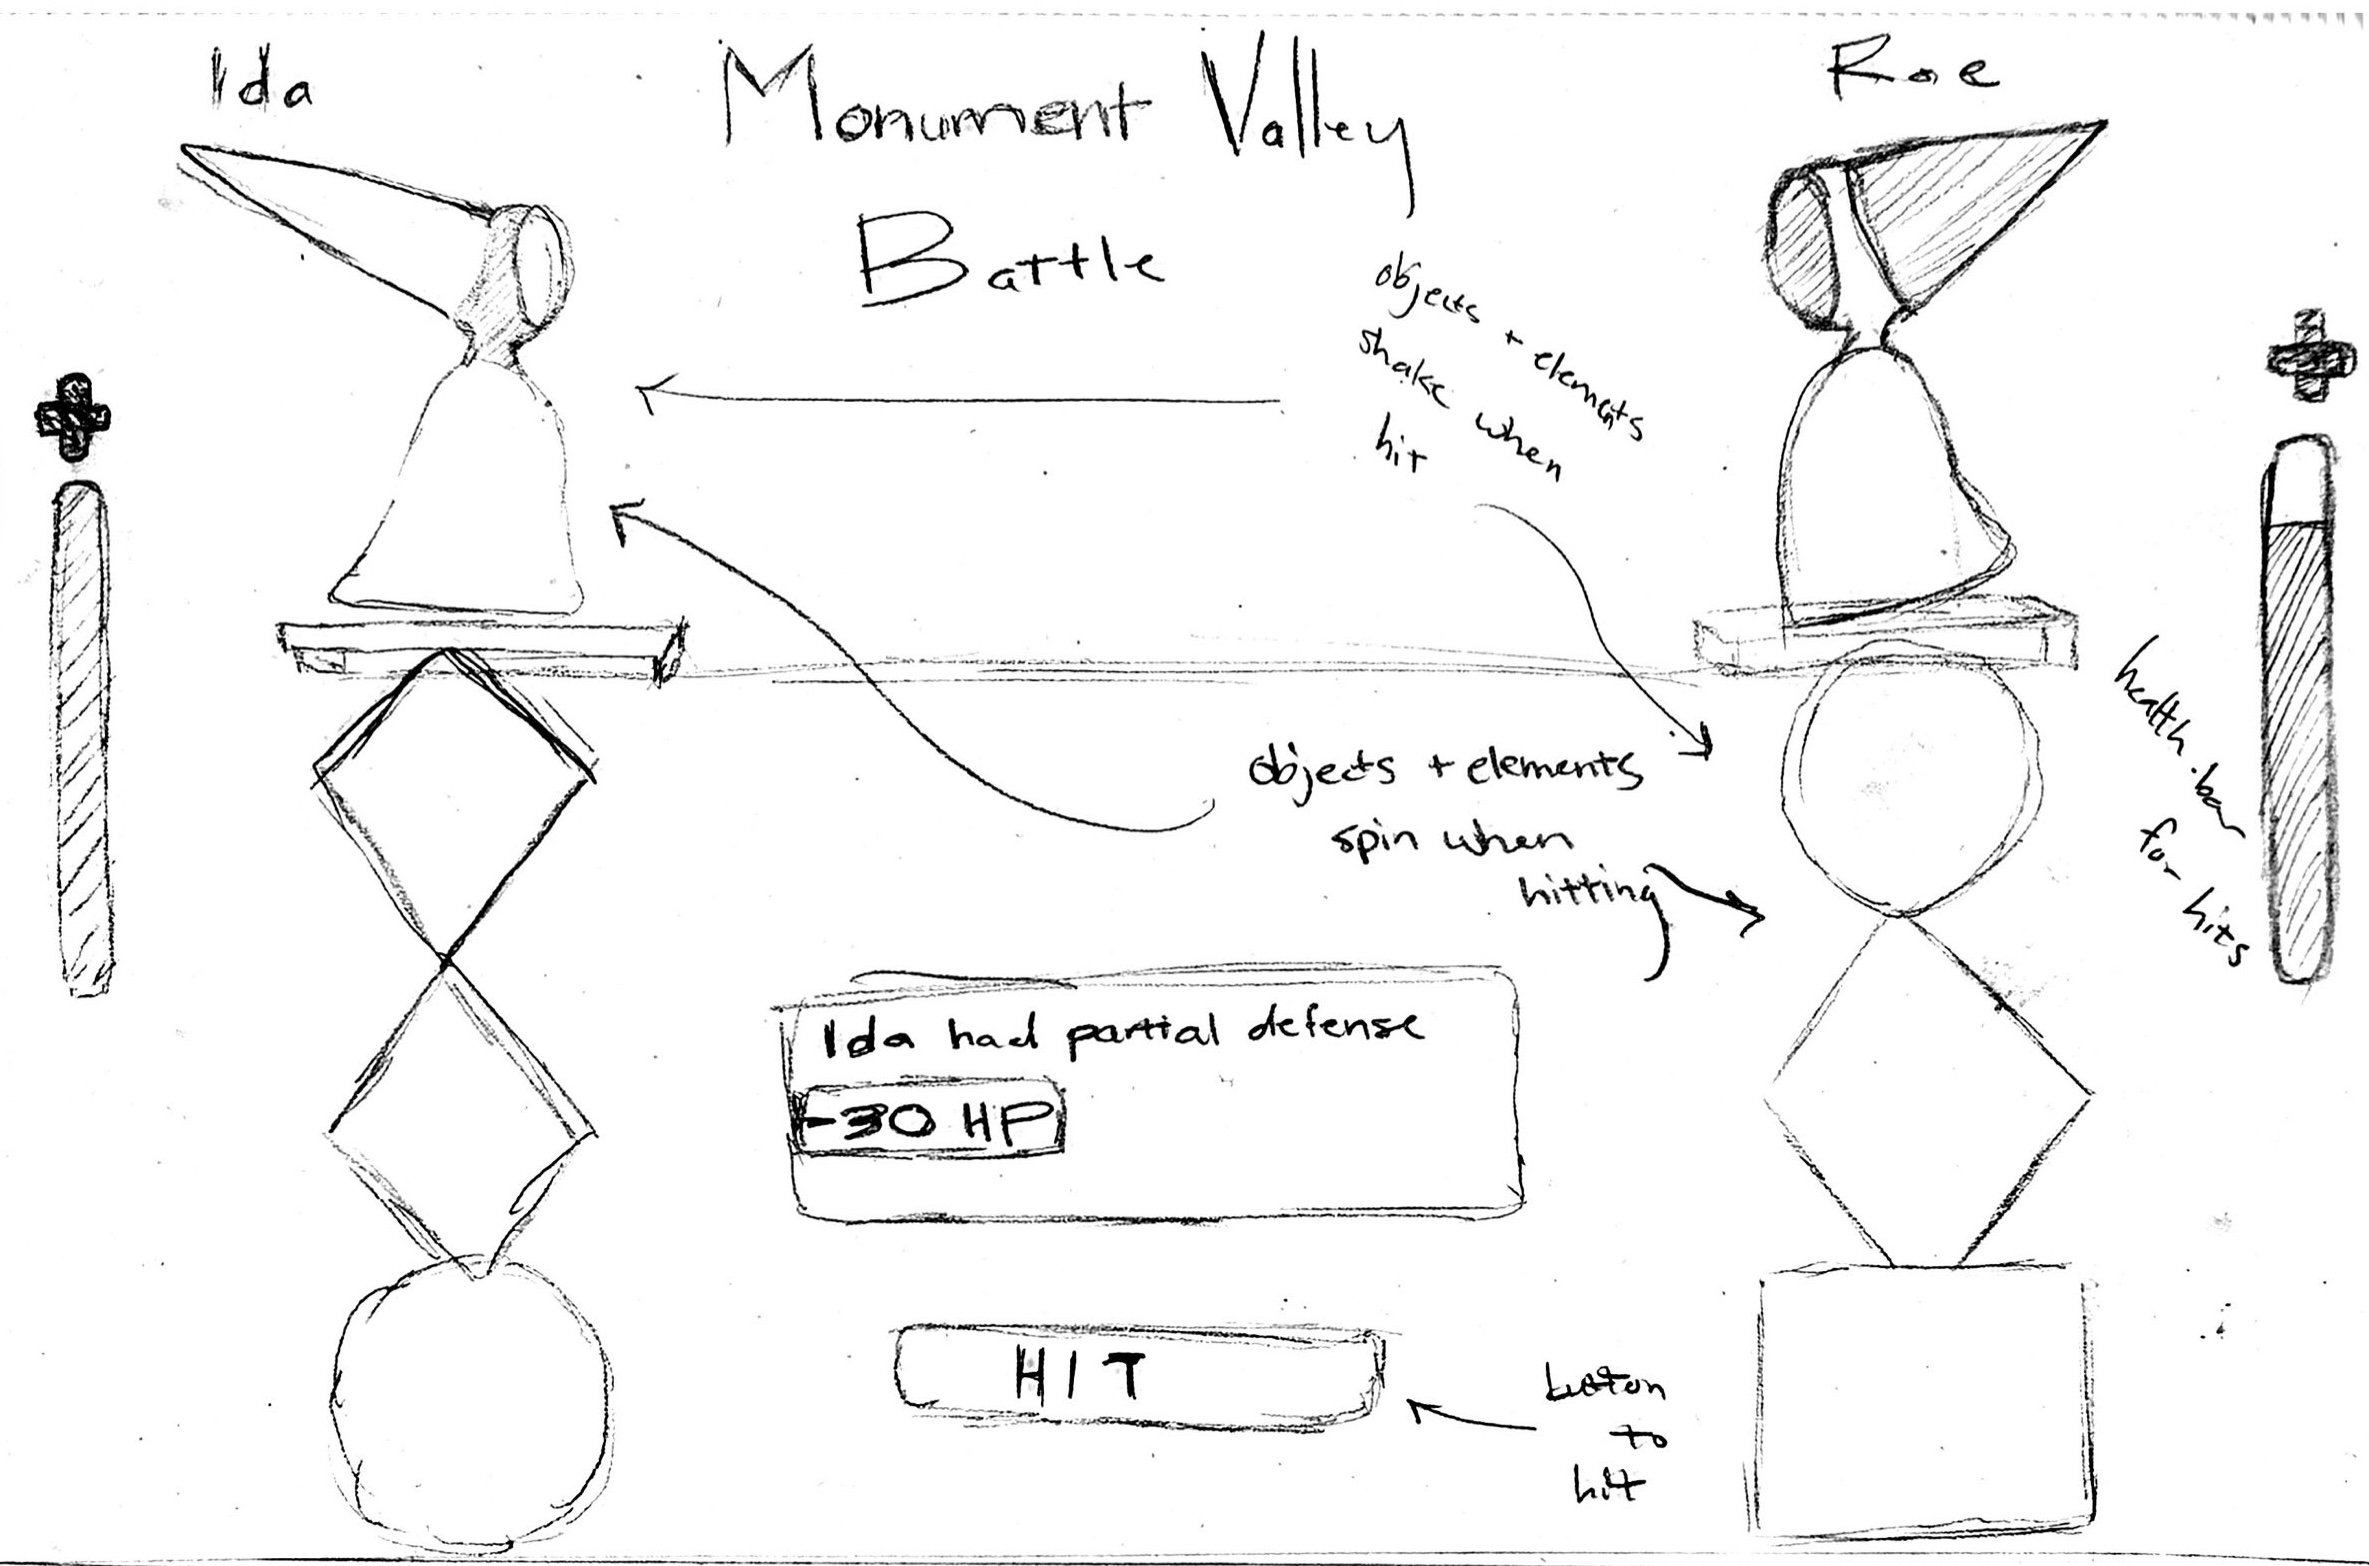 Ida
Monument Valley
Battle
Roe
objects + elements
shake when
hit
objects + elements
spin when
hitting
health bar
for hits
Ida had partial defense
-30 HP
HIT
button
to
hit